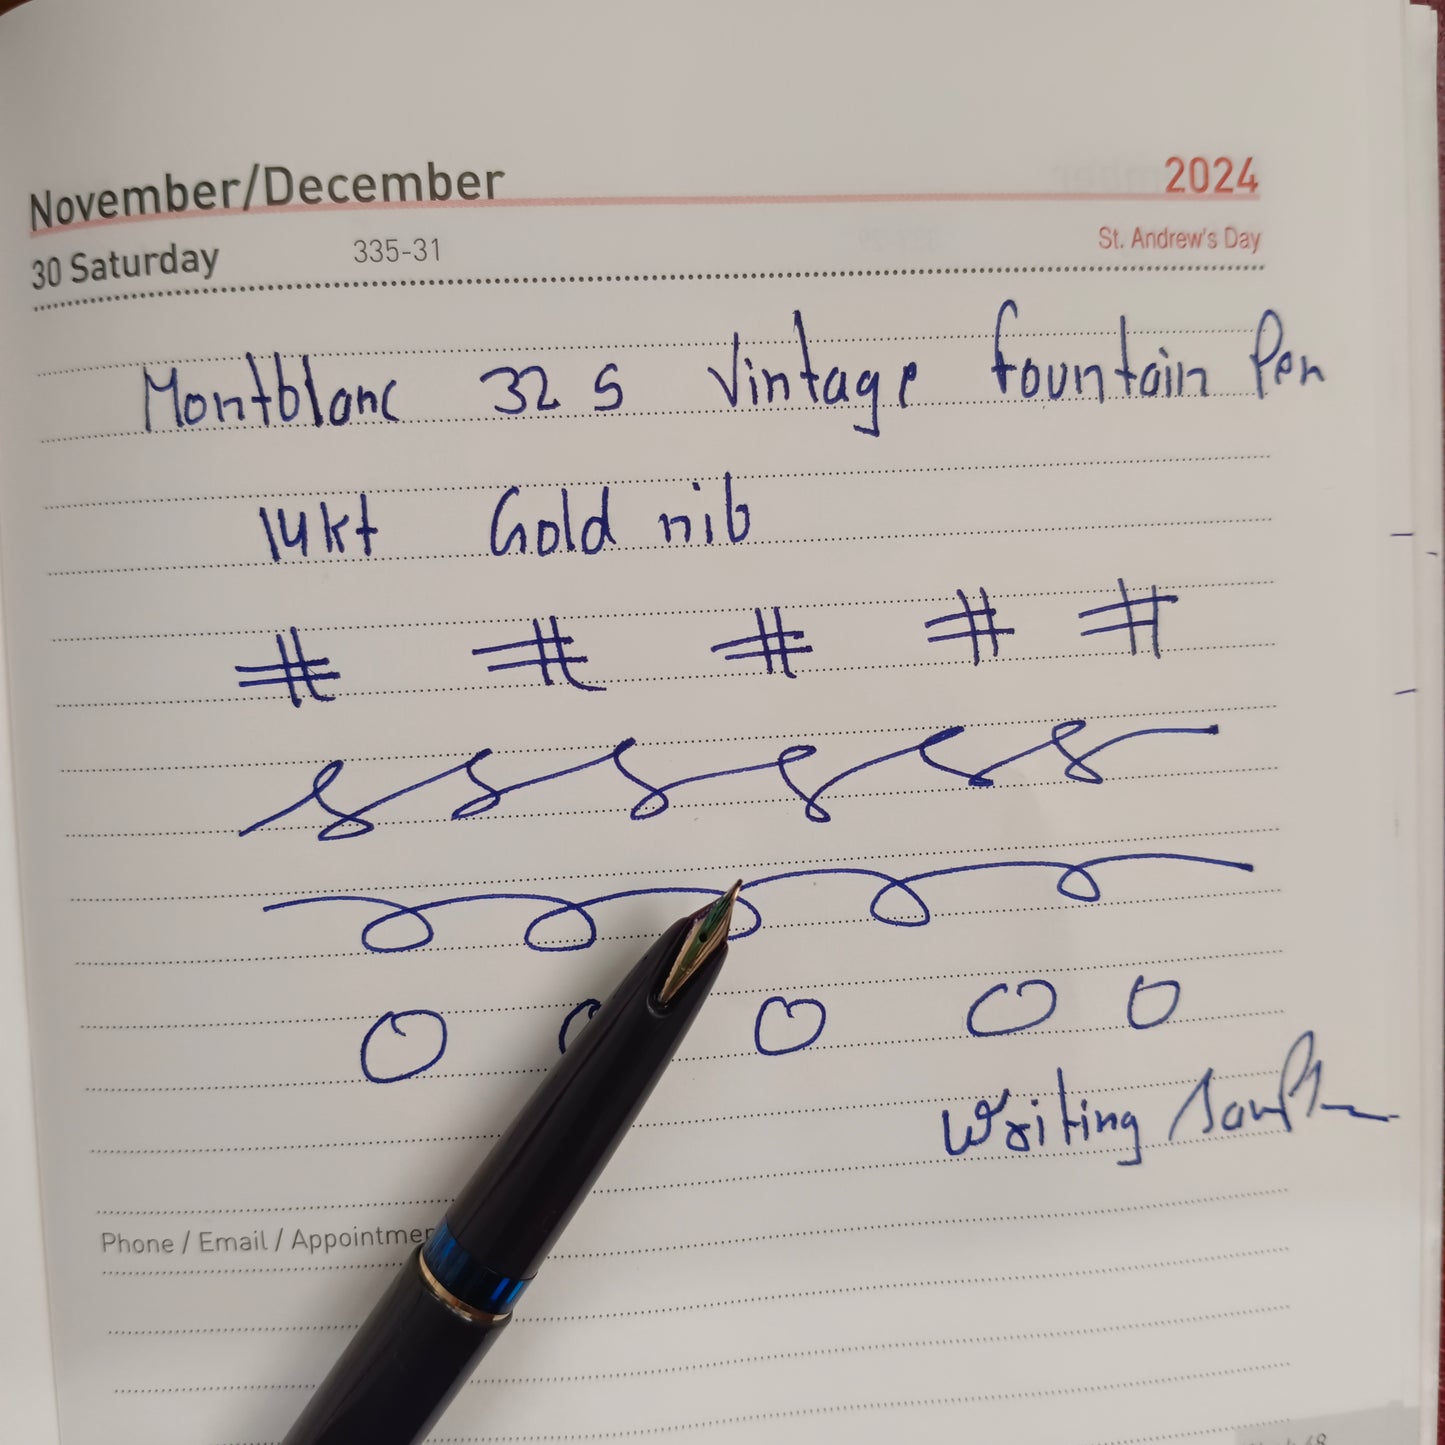 November/December 2024
30 Saturday 335-31 St. Andrew's Day
Montblanc 32 S Vintage Fountain Pen
14kt Gold nib
# # # # #
Writing Sample
Phone / Email / Appointmen